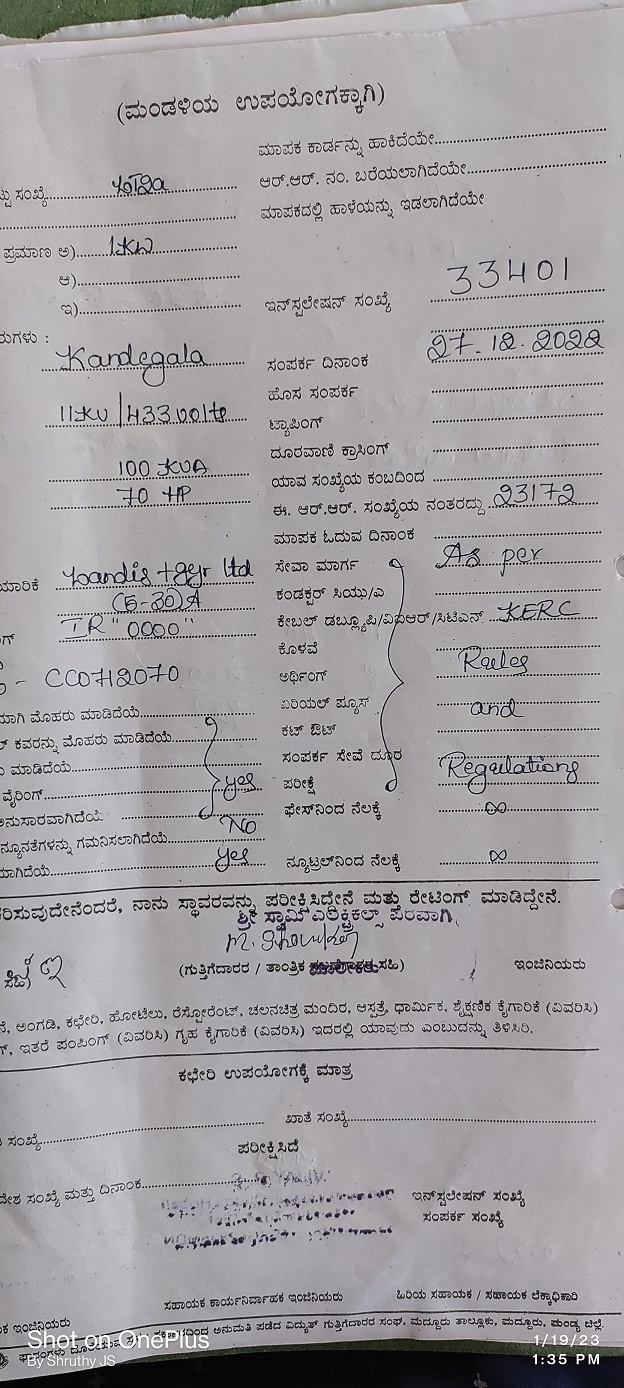 (ಮಂಡಳಿಯ ಉಪಯೋಗಕ್ಕಾಗಿ)
ಮಾಪಕ ಕಾರ್ಡನ್ನು ಹಾಕಿದೆಯೇ
ಸಂಖ್ಯೆ
ಆರ್.ಆರ್. ನಂ. ಬರೆಯಲಾಗಿದೆಯೇ
ಮಾಪಕದಲ್ಲಿ ಹಾಳೆಯನ್ನು ಇಡಲಾಗಿದೆಯೇ
ಪ್ರಮಾಣ ಅ) 1KW
ಆ)
ಇ)
ಇನ್‌ಸ್ಟಲೇಷನ್ ಸಂಖ್ಯೆ 33401
Kandegala
ಸಂಪರ್ಕ ದಿನಾಂಕ 27-12-2022
ಹೊಸ ಸಂಪರ್ಕ
11KV/433 volts ಟ್ಯಾಪಿಂಗ್
ದೂರವಾಣಿ ಕ್ರಾಸಿಂಗ್
100 KVA ಯಾವ ಸಂಖ್ಯೆಯ ಕಂಬದಿಂದ
70 HP ಈ. ಆರ್.ಆರ್. ಸಂಖ್ಯೆಯ ನಂತರದ್ದು 23172
ಮಾಪಕ ಓದುವ ದಿನಾಂಕ
Landis + gyr ltd ಸೇವಾ ಮಾರ್ಗ As per
(5-30)A ಕಂಡಕ್ಟರ್ ಸಿಯು/ಎ
IR "0000" ಕೇಬಲ್ ಡಬ್ಲ್ಯೂಪಿ/ವಿಐಆರ್/ಸಿಟಿಎಸ್ KERC
ಕೊಳವೆ
- CC0712070 ಅರ್ಥಿಂಗ್ Rules
ಮೊಹರು ಮಾಡಿದೆಯೆ ಏರಿಯಲ್ ಫ್ಯೂಸ್
ಕವರನ್ನು ಮೊಹರು ಮಾಡಿದೆಯೆ ಕಟ್ ಔಟ್ and
ಮಾಡಿದೆಯೆ ಸಂಪರ್ಕ ಸೇವೆ ದೂರ
ವೈರಿಂಗ್ yes ಪರೀಕ್ಷೆ Regulations
ಫೇಸ್‌ನಿಂದ ನೆಲಕ್ಕೆ ∞
ನ್ಯೂನತೆಗಳನ್ನು ಗಮನಿಸಲಾಗಿದೆಯೆ No
yes ನ್ಯೂಟ್ರಲ್‌ನಿಂದ ನೆಲಕ್ಕೆ ∞
ನಾನು ಸ್ಥಾವರವನ್ನು ಪರೀಕ್ಷಿಸಿದ್ದೇನೆ ಮತ್ತು ರೇಟಿಂಗ್ ಮಾಡಿದ್ದೇನೆ.
ಶ್ರೀ ಸ್ವಾಮಿ ಎಲೆಕ್ಟ್ರಿಕಲ್ಸ್ ಪರವಾಗಿ,
(ಗುತ್ತಿಗೆದಾರರ / ತಾಂತ್ರಿಕ ಸಹಿ)
ಇಂಜಿನಿಯರು
ಅಂಗಡಿ, ಕಛೇರಿ, ಹೋಟೆಲು, ರೆಸ್ಟೋರೆಂಟ್, ಚಲನಚಿತ್ರ ಮಂದಿರ, ಆಸ್ಪತ್ರೆ, ಧಾರ್ಮಿಕ, ಶೈಕ್ಷಣಿಕ ಕೈಗಾರಿಕೆ (ವಿವರಿಸಿ)
ಇತರೆ ಪಂಪಿಂಗ್ (ವಿವರಿಸಿ) ಗೃಹ ಕೈಗಾರಿಕೆ (ವಿವರಿಸಿ) ಇದರಲ್ಲಿ ಯಾವುದು ಎಂಬುದನ್ನು ತಿಳಿಸಿರಿ.
ಕಛೇರಿ ಉಪಯೋಗಕ್ಕೆ ಮಾತ್ರ
ಸಂಖ್ಯೆ ಖಾತೆ ಸಂಖ್ಯೆ
ಪರೀಕ್ಷಿಸಿದೆ
ಸಂಖ್ಯೆ ಮತ್ತು ದಿನಾಂಕ
ಇನ್‌ಸ್ಟಲೇಷನ್ ಸಂಖ್ಯೆ
ಸಂಪರ್ಕ ಸಂಖ್ಯೆ
ಇಂಜಿನಿಯರು ಸಹಾಯಕ ಕಾರ್ಯನಿರ್ವಾಹಕ ಇಂಜಿನಿಯರು ಹಿರಿಯ ಸಹಾಯಕ / ಸಹಾಯಕ ಲೆಕ್ಕಾಧಿಕಾರಿ
ಅನುಮತಿ ಪಡೆದ ವಿದ್ಯುತ್ ಗುತ್ತಿಗೆದಾರರ ಸಂಘ, ಮದ್ದೂರು ತಾಲ್ಲೂಕು, ಮದ್ದೂರು, ಮಂಡ್ಯ ಜಿಲ್ಲೆ.
Shot on OnePlus 1/19/23
By Shruthy JS 1:35 PM